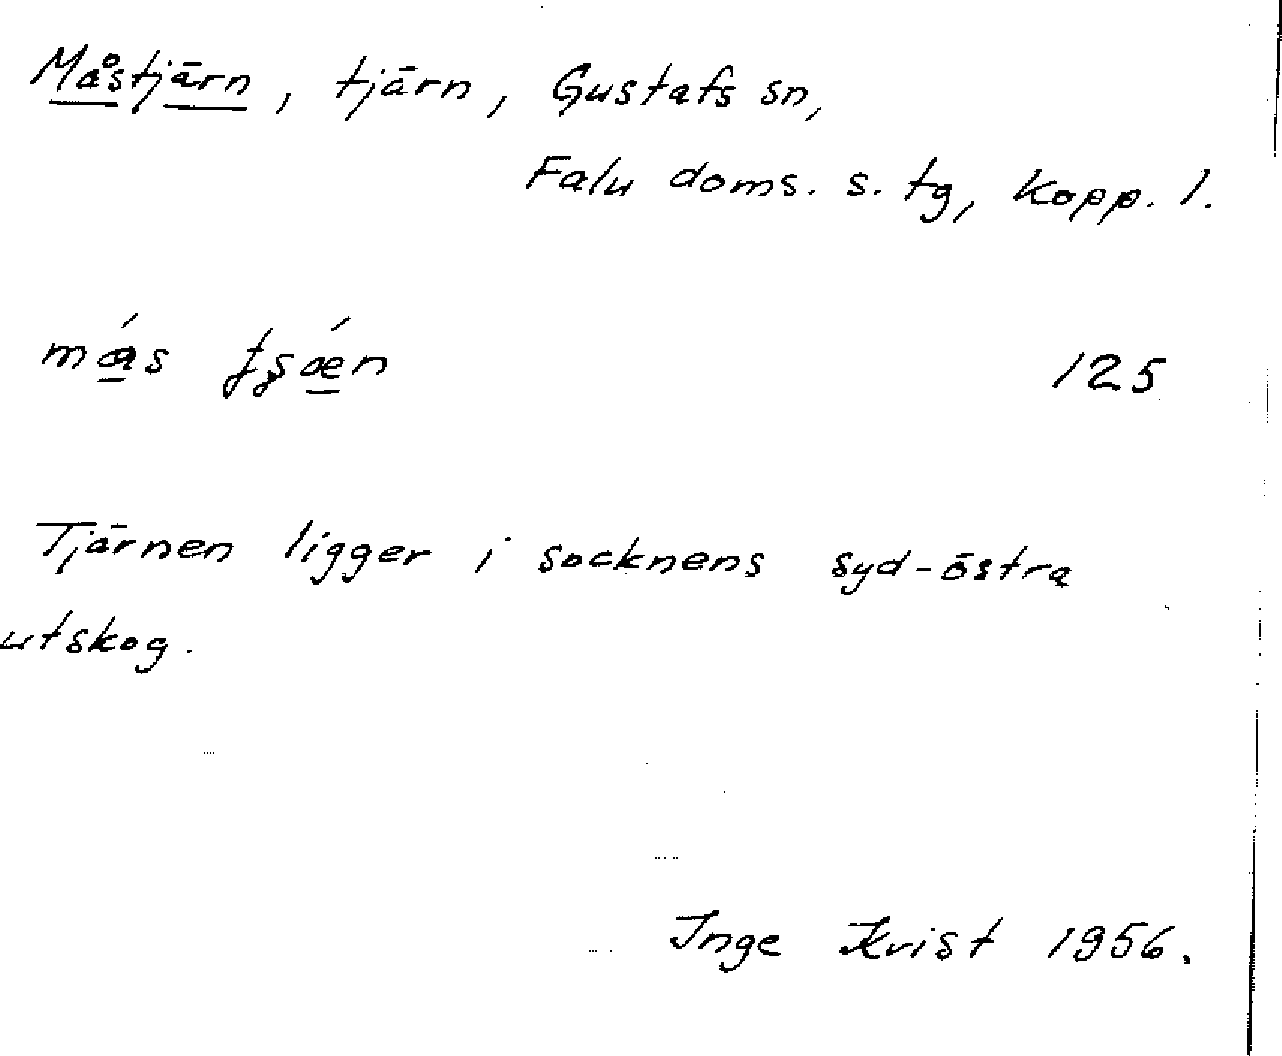 Måstjärn, tjärn, Gustafs sn,
Falu doms. s. tg, Kopp. l.
125
Tjärnen ligger i socknens syd-östra
utskog.
Inge Kvist 1956.